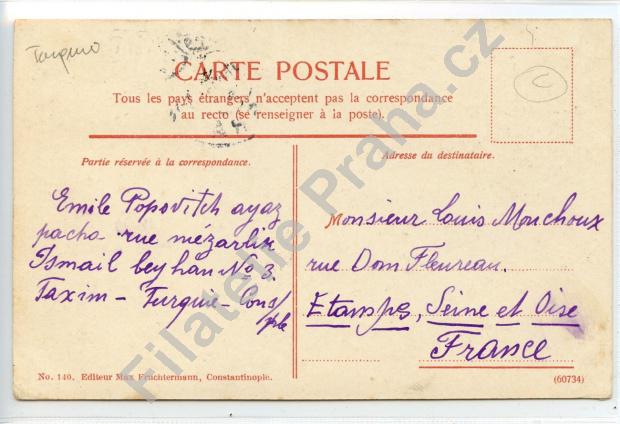 CARTE POSTALE
Tous les pays étrangers n'acceptent pas la correspondance
au recto (se renseigner à la poste).
Partie réservée à la correspondance.
Emile Popovitch ayaz
pacha rue mézarlik
Ismail bey han No 3.
Taxim - Turquie - Cons/
ple
Adresse du destinataire.
Monsieur Louis Mouchoux
rue Dom Fleureau.
Etamps, Seine et Oise
France
No. 140. Editeur Max Fruchtermann, Constantinople.
(60734)
Filatelie Praha.cz